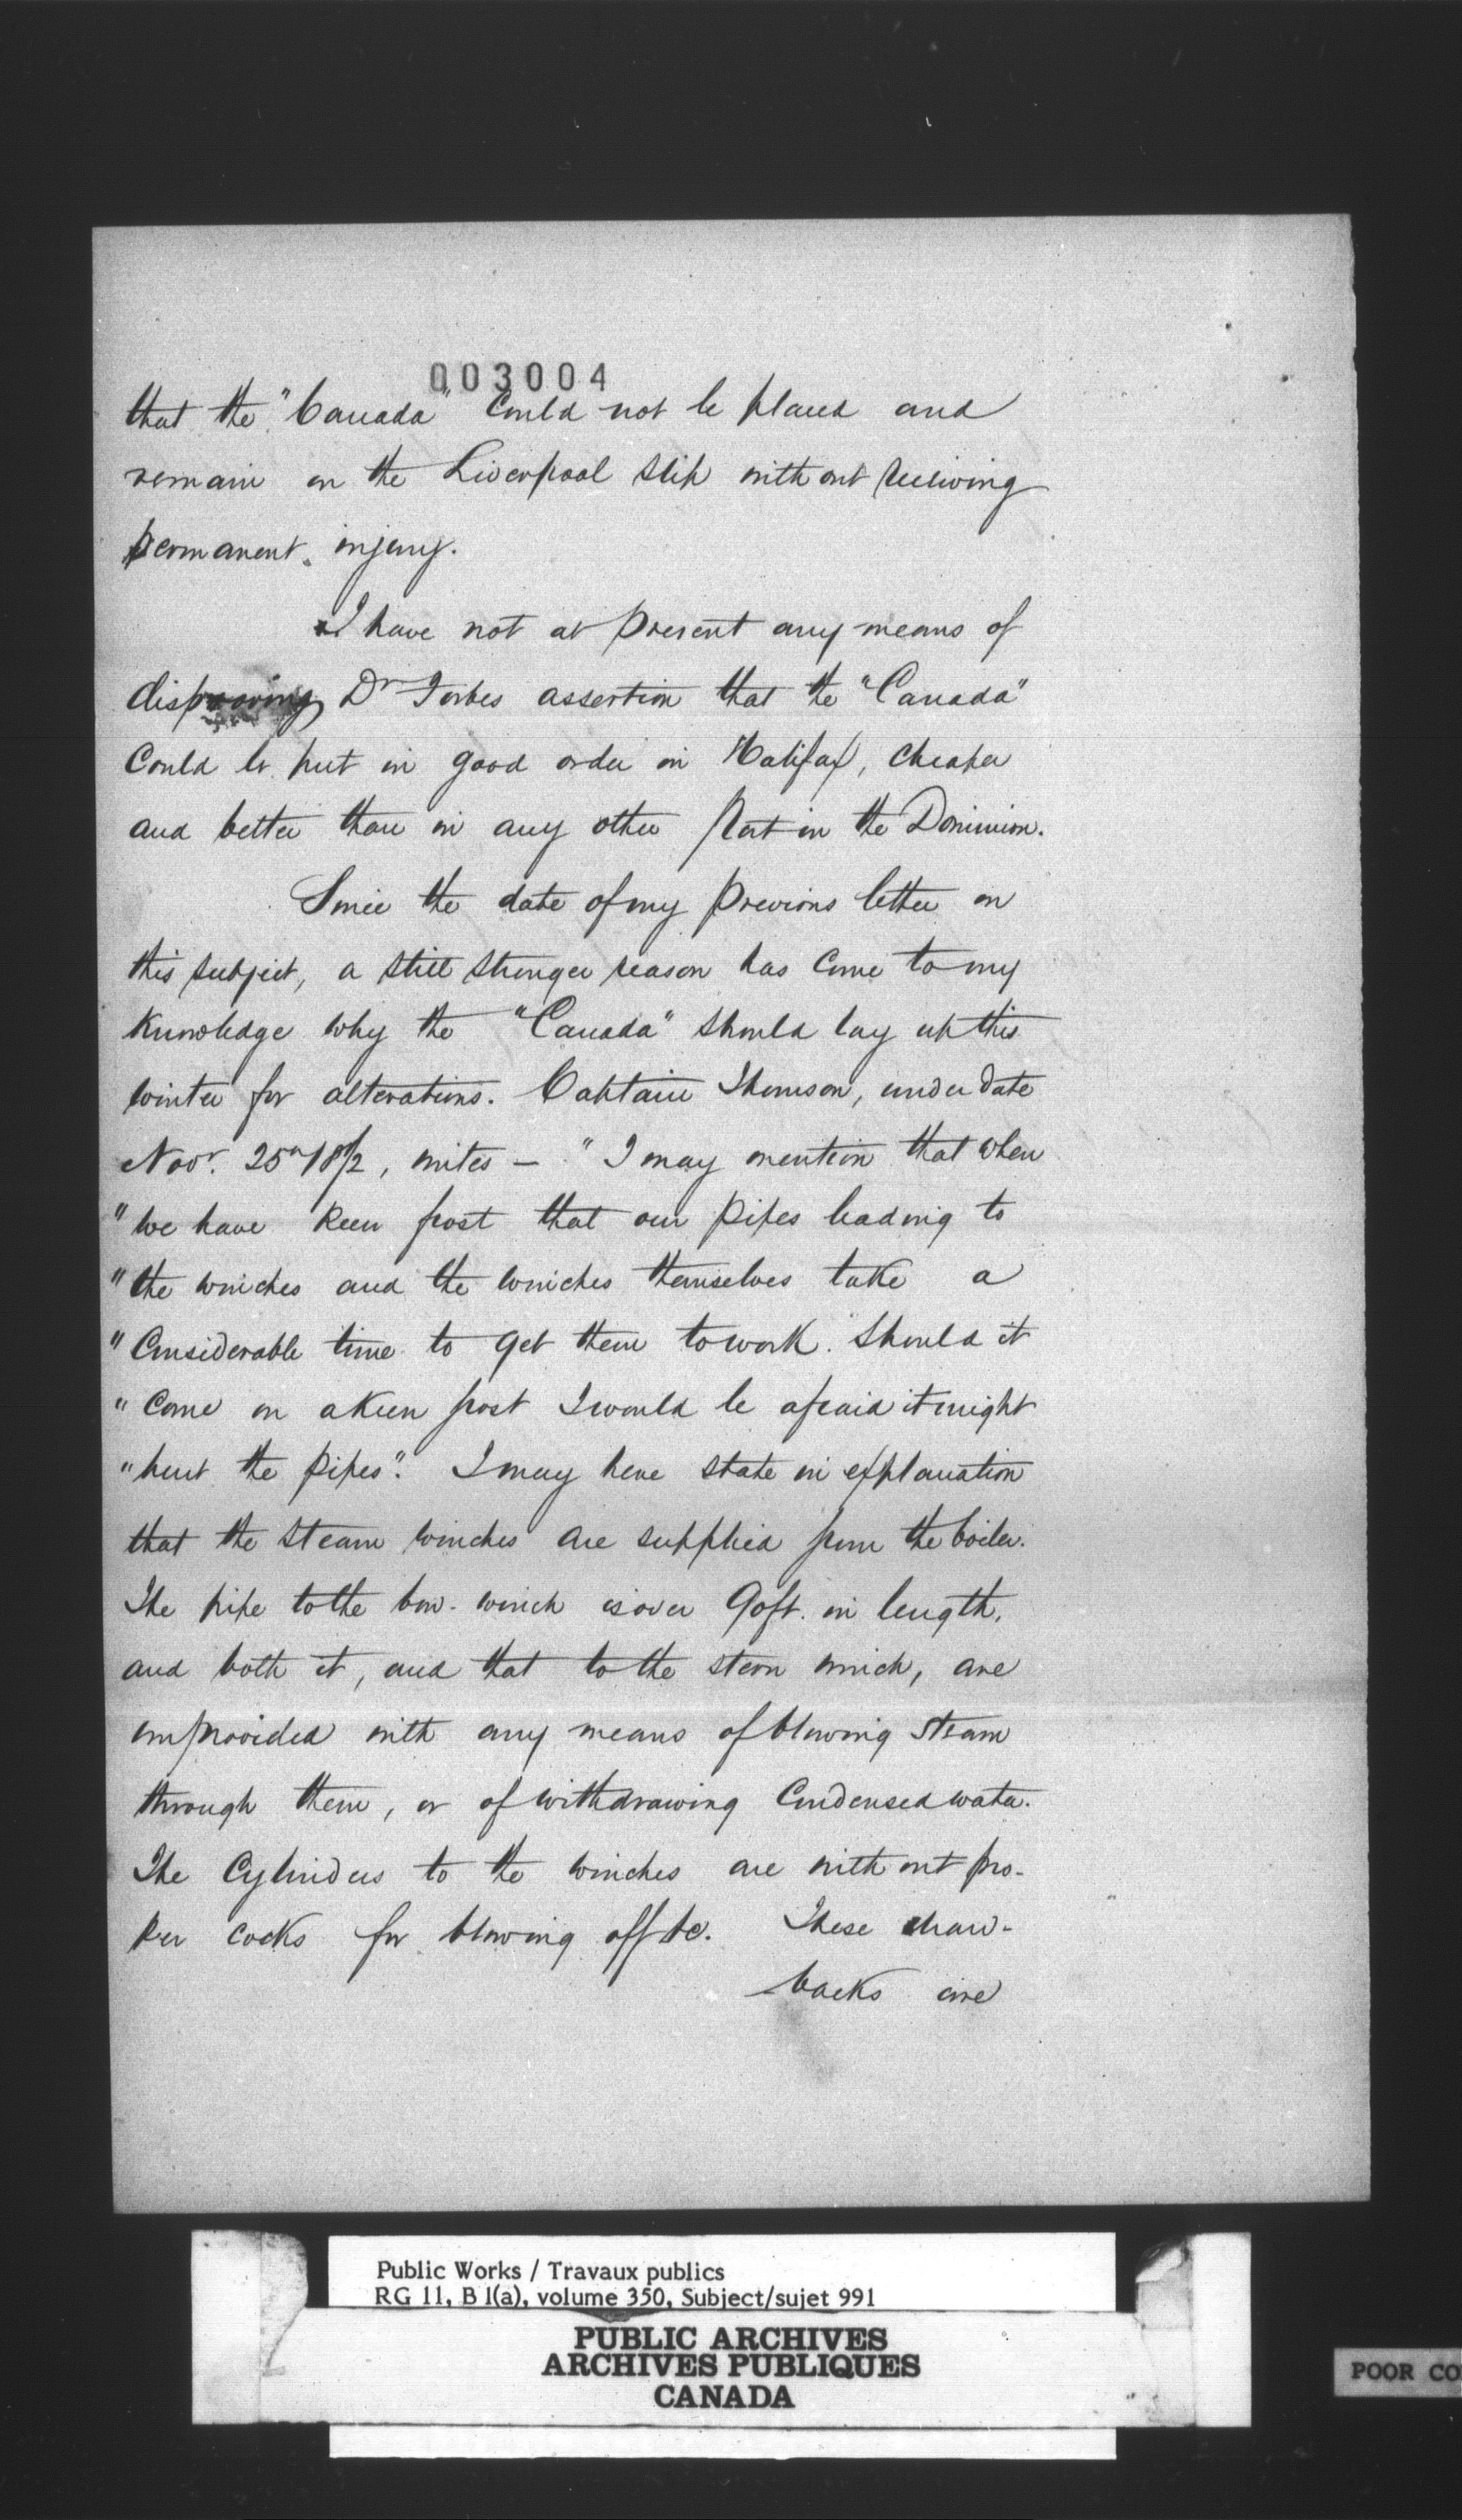 003004
that the "Canada" could not be placed and
remain on the Liverpool slip without receiving
permanent injury.
I have not at present any means of
disproving Dr Forbes assertion that the "Canada"
could be put in good order in Halifax, cheaper
and better than in any other Port in the Dominion.
Since the date of my previous letter on
this subject, a still stronger reason has come to my
knowledge why the "Canada" should lay up this
winter for alterations. Captain Thomson, under date
Novr. 25th 1872, writes — "I may mention that when
"we have keen frost that our pipes leading to
"the winches and the winches themselves take a
"considerable time to get them to work. Should it
"come on a keen frost I would be afraid it might
"hurt the pipes". I may here state in explanation
that the steam winches are supplied from the boiler.
The pipe to the bow-winch is over 90ft. in length,
and both it, and that to the stern winch, are
unprovided with any means of blowing steam
through them, or of withdrawing condensed water.
The cylinders to the winches are without pro-
per cocks for blowing off &c. These draw-
backs are
Public Works / Travaux publics
RG 11, B 1(a), volume 350, Subject/sujet 991
PUBLIC ARCHIVES
ARCHIVES PUBLIQUES
CANADA
POOR CO